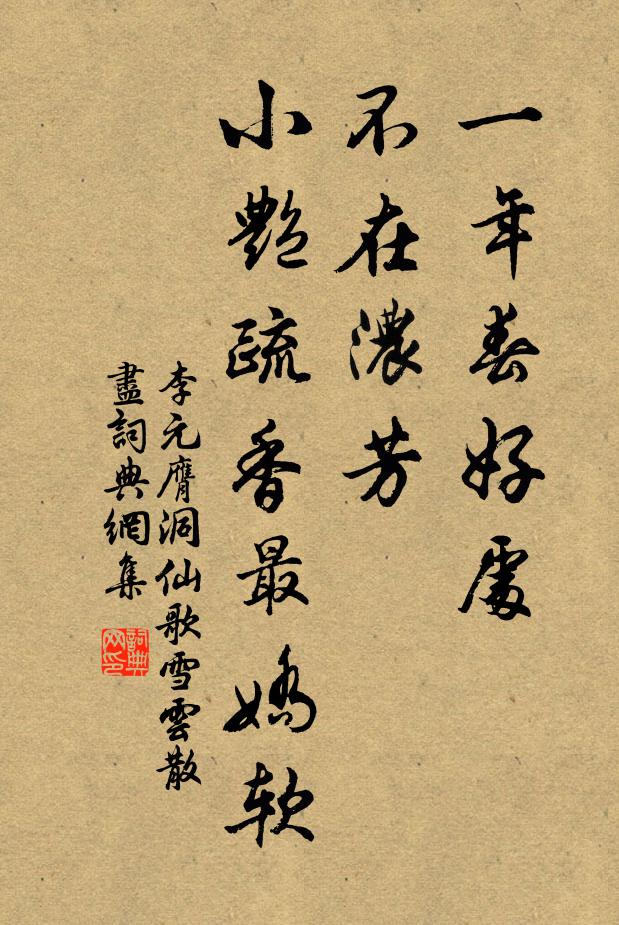 一年春好處
不在濃芳
小艷疏香最嬌软
李元膺洞仙歌雪雲散
盡詞典網集
詞典网印